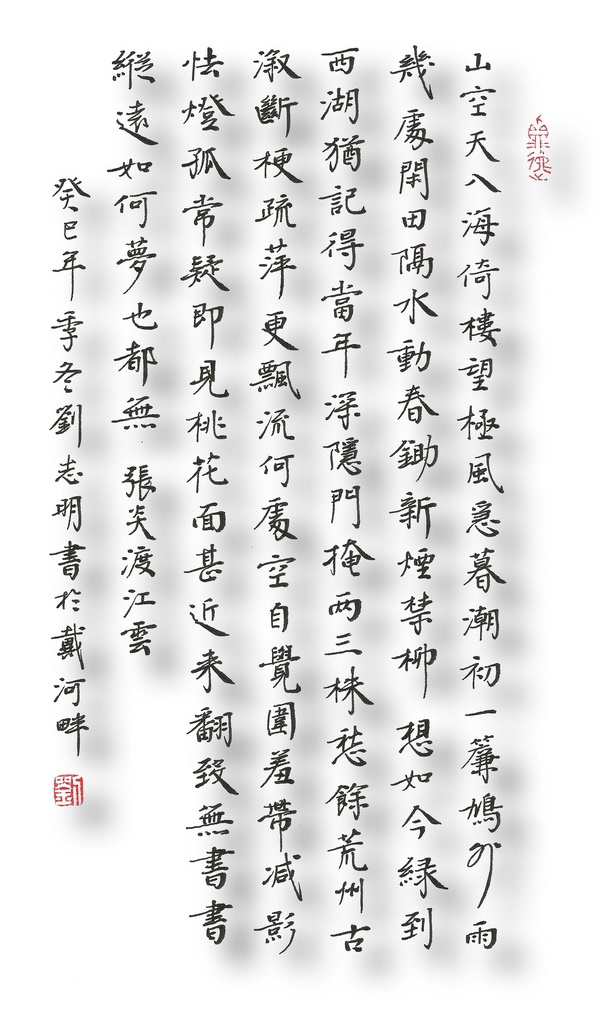 山空天入海倚樓望極風急暮潮初一簾鳩外雨
幾處閑田隔水動春鋤新煙禁柳 想如今緑到
西湖猶記得當年深隱門掩两三株愁餘荒州古
溆斷梗疏萍更飄流何處空自覺圍羞帶减影
怯燈孤常疑即見桃花面甚近来翻致無書書
縱遠如何夢也都無 張炎渡江雲
癸巳年季冬劉志明書於戴河畔
劉